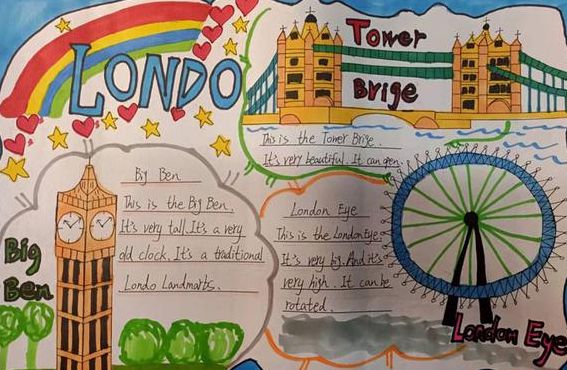 LONDO
Tower
Brige
This is the Tower Brige.
It's very beautiful. It can open.
By Ben
This is the Big Ben.
It's very tall. It's a very
old clock. It's a traditional
Londo Landmarks.
Big
Ben
London Eye
This is the London Eye.
It's very big. And it's
very high. It can be
rotated.
London Eye